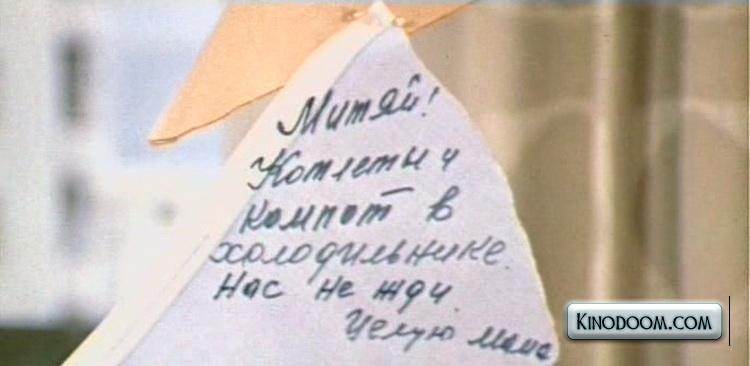 Митяй!
Котлеты и
компот в
холодильнике.
Нас не жди
Целую мама
KINODOOM.COM